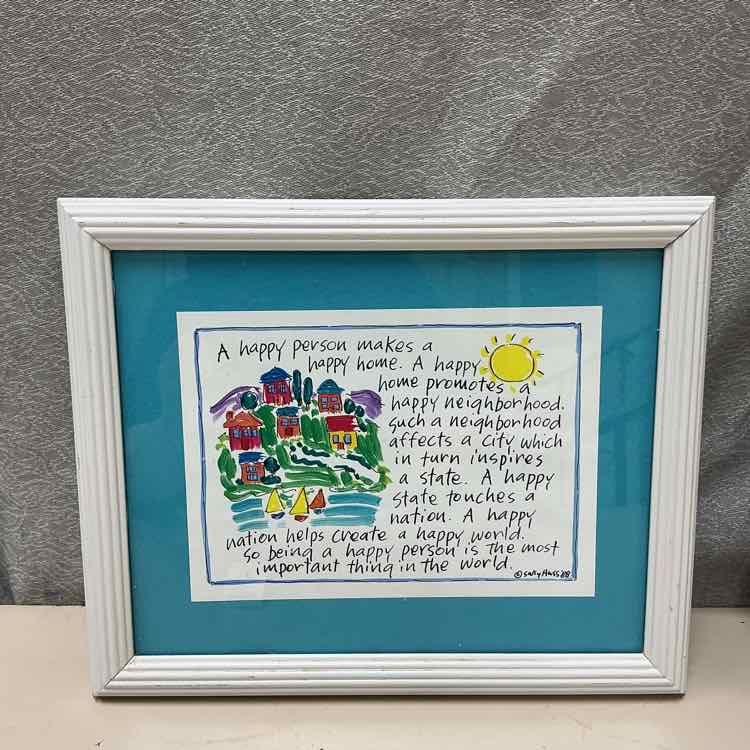 A happy person makes a
happy home. A happy
home promotes a
happy neighborhood.
Such a neighborhood
affects a city which
in turn inspires
a state. A happy
state touches a
nation. A happy
nation helps create a happy world.
So being a happy person is the most
important thing in the world.
© Sally Huss 88